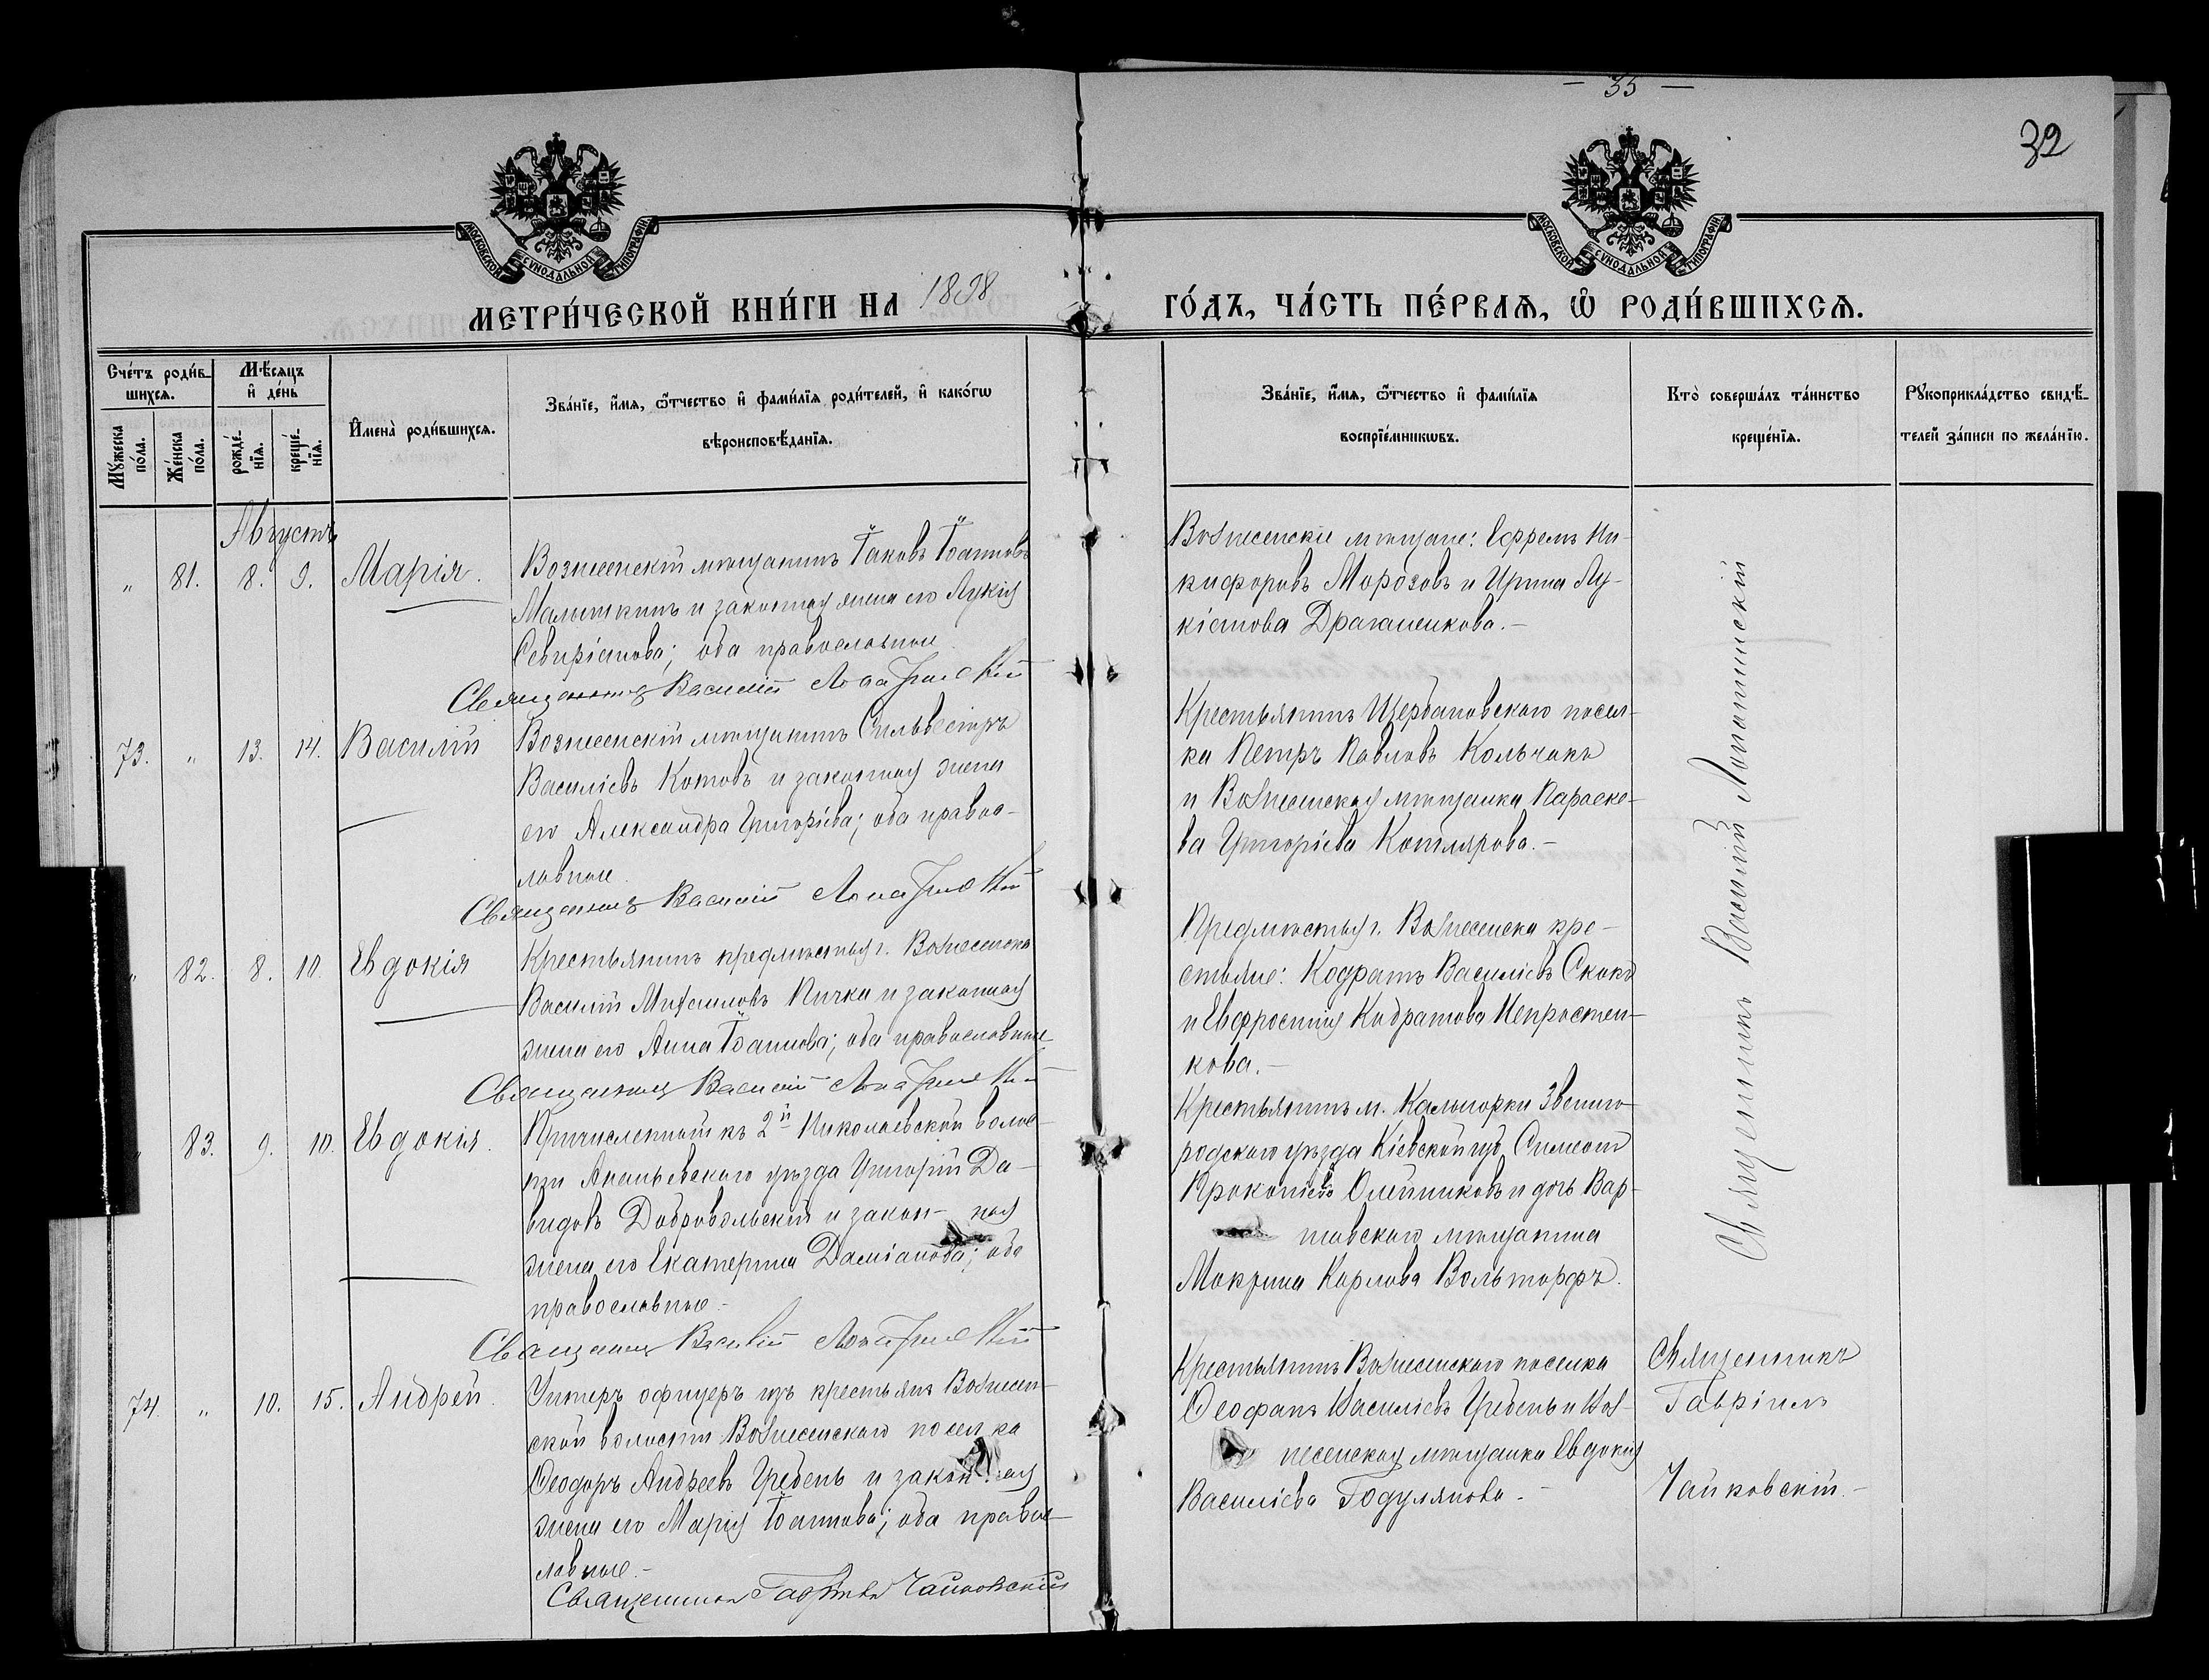 — 35 —
32
МОСКОВСКОЙ СѴНОДАЛЬНОЙ ТИПОГРАФІИ
МОСКОВСКОЙ СѴНОДАЛЬНОЙ ТИПОГРАФІИ
МЕТРИ́ЧЕСКОЙ КНИ́ГИ НА 1898 ГО́ДЪ, ЧА́СТЬ ПЕ́РВАѦ, Ѡ҆ РОДИ́ВШИХСѦ.
Сче́тъ роди́в-
шихся.
Мѣ́сяцъ
и҆ де́нь
Му́жеска
по́ла.
Же́нска
по́ла.
рожде́-
нїя.
креще́-
нїя.
И҆мена̀ роди́вшихся.
Зва́нїе, и҆́мя, ѻ҆́тчество и҆ фами́лїя роди́телей, и҆ како́гѡ
вѣроисповѣ́данїя.
Зва́нїе, и҆́мя, ѻ҆́тчество и҆ фами́лїя
воспрїе́мникѡвъ.
Кто̀ соверша́лъ та́инство
креще́нїя.
Рукоприкла́дство свидѣ́-
телей за́писи по жела́нїю.
Августъ
„ 81. 8. 9. Марія.
Вознесенскій мѣщанинъ Іаковъ Іоанновъ
Малыткинъ и законная жена его Лукія
Севиріанова; оба православные.
Священникъ Василій Лопатинскій
Вознесенскіе мѣщане: Ефремъ Ни-
кифоровъ Морозовъ и Ирина Лу-
кіанова Драганенкова.—
73. „ 13. 14. Василій
Вознесенскій мѣщанинъ Сильвестръ
Василіевъ Котовъ и законная жена
его Александра Григоріева; оба правос-
лавные.
Священникъ Василій Лопатинскій
Крестьянинъ Щербановскаго посел-
ка Петръ Павловъ Кольчакъ
и Вознесенская мѣщанка Параске-
ва Григоріева Котлярова.—
„ 82. 8. 10. Евдокія
Крестьянинъ предмѣстья г. Вознесенска
Василій Михаиловъ Пичка и законная
жена его Анна Іоаннова; оба православные.
Священникъ Василій Лопатинскій
Предмѣстья г. Вознесенска кре-
стьяне: Кодратъ Василіевъ Скокъ
и Евфросинія Кодратова Непростен-
кова.—
„ 83. 9. 10. Евдокія.
Причисленный къ 2й Николаевской волос-
ти Ананьевскаго уѣзда Григорій Да-
видовъ Добровольскій и закон- ная
жена его Екатерина Даміанова; оба
православные.—
Священникъ Василій Лопатинскій
Крестьянинъ м. Калигорки Звениго-
родскаго уѣзда Кіевской губ. Симеонъ
Прокопіевъ Олейниковъ и дочь Вар-
шавскаго мѣщанина
Макрина Карлова Вольторфъ.
Священникъ Василій Лопатинскій
74. „ 10. 15. Андрей.
Унтеръ офицеръ изъ крестьянъ Вознесен-
ской волости Вознесенскаго поселка
Ѳеодоръ Андреевъ Гребень и законная
жена его Марія Іоаннова; оба правос-
лавные.—
Священникъ Гавріилъ Чайковскій
Крестьянинъ Вознесенскаго поселка
Ѳеофанъ Василіевъ Гребень и Воз-
несенская мѣщанка Евдокія
Василіева Годулянова.—
Священникъ
Гавріилъ
Чайковскій.—